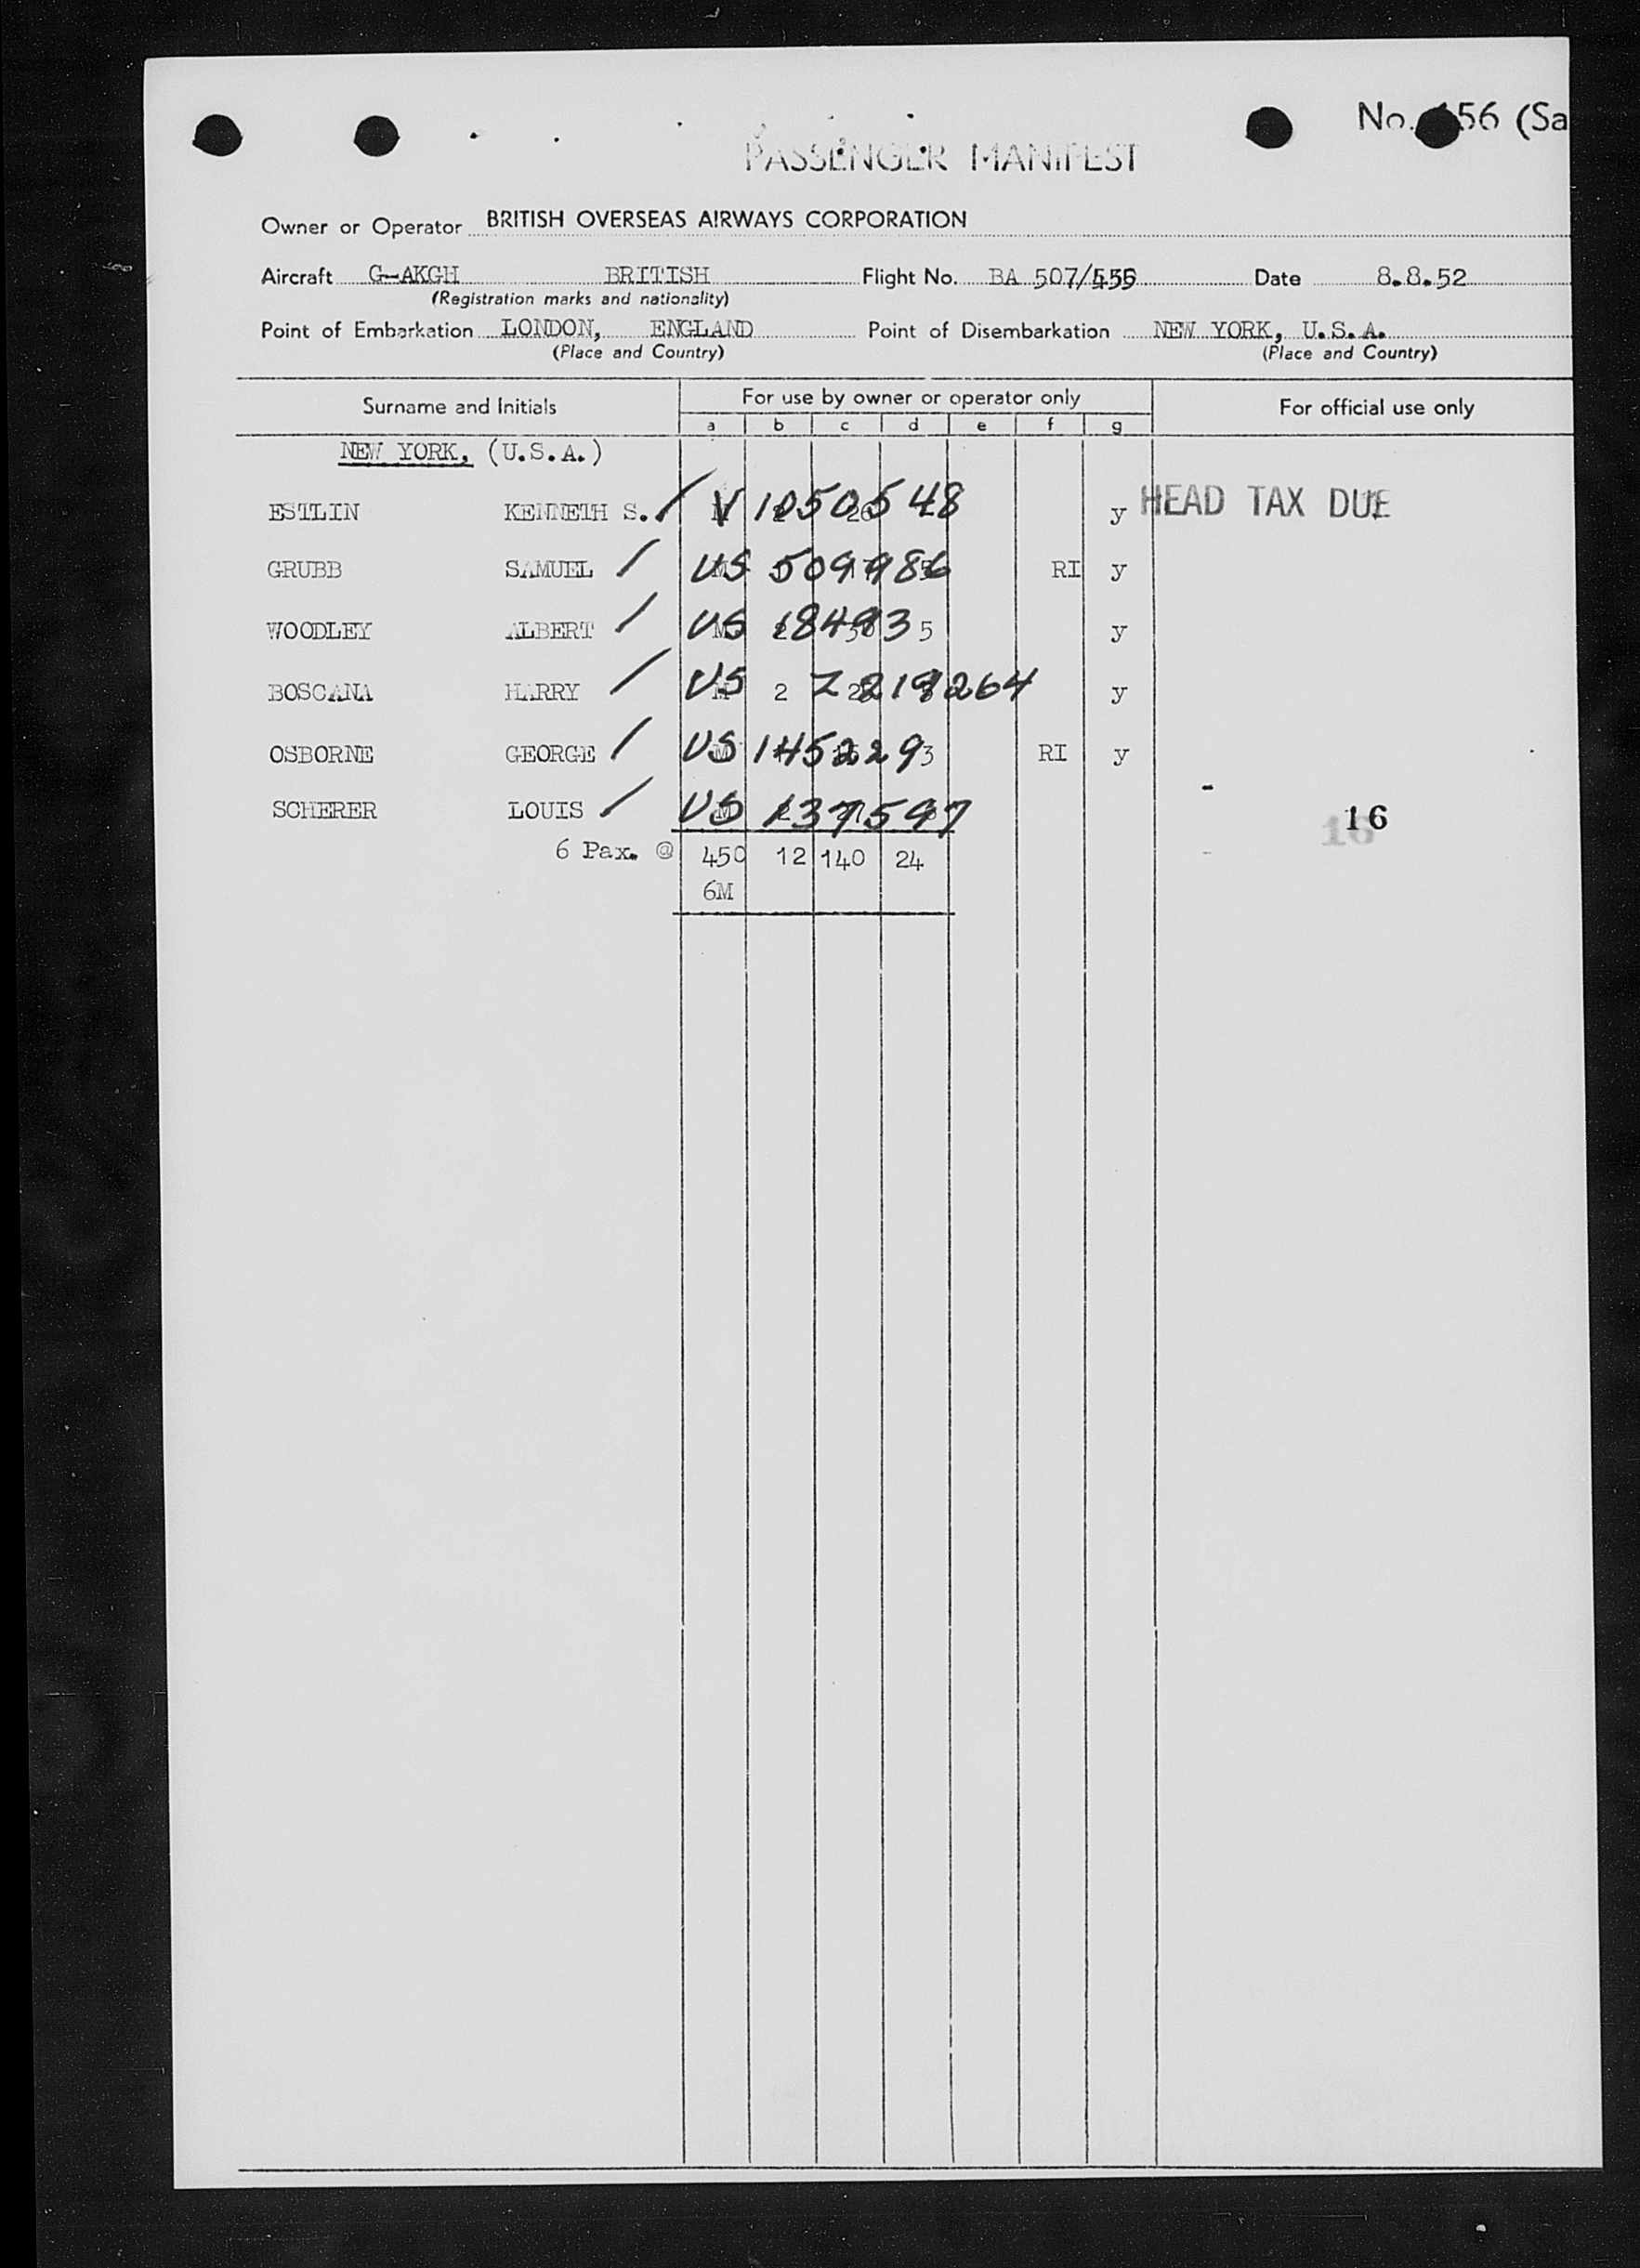 No. 156 (Sa
PASSENGER MANIFEST
Owner or Operator BRITISH OVERSEAS AIRWAYS CORPORATION
Aircraft G-AKGH BRITISH Flight No. BA 507/ Date 8.8.52
(Registration marks and nationality)
Point of Embarkation LONDON, ENGLAND Point of Disembarkation NEW YORK, U.S.A.
(Place and Country) (Place and Country)
Surname and Initials For use by owner or operator only For official use only
a b c d e f g
NEW YORK, (U.S.A.)
ESTLIN KENNETH S. / V 1050548 y HEAD TAX DUE
GRUBB SAMUEL / US 509986 RI y
WOODLEY ALBERT / US 18493 5 y
BOSCANA HARRY / US 2 Z 219264 y
OSBORNE GEORGE / US 1452293 RI y
SCHERER LOUIS / US 137597 16
6 Pax. @ 450 12 140 24
6M